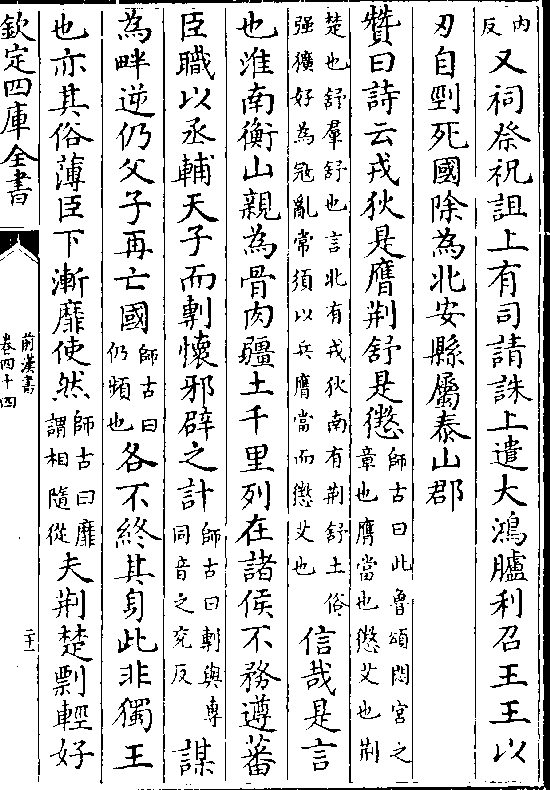 内反又祠祭祝詛上有司請誅上遣大鴻臚利召王王以
刃自剄死國除為北安縣屬泰山郡
贊曰詩云戎狄是膺荆舒是懲師古曰此魯頌閟宫之章也膺當也懲艾也荆
楚也舒羣舒也言北有戎狄南有荆舒土俗强獷好為冦亂常須以兵膺當而懲艾也信哉是言
也淮南衡山親為骨肉疆土千里列在諸侯不務遵蕃
臣職以丞輔天子而剸懷邪辟之計師古曰剸與專同音之兖反謀
為畔逆仍父子再亡國師古曰仍頻也各不終其身此非獨王
也亦其俗薄臣下漸靡使然師古曰靡謂相隨從夫荆楚剽輕好
欽定四庫全書
前漢書
卷四十四